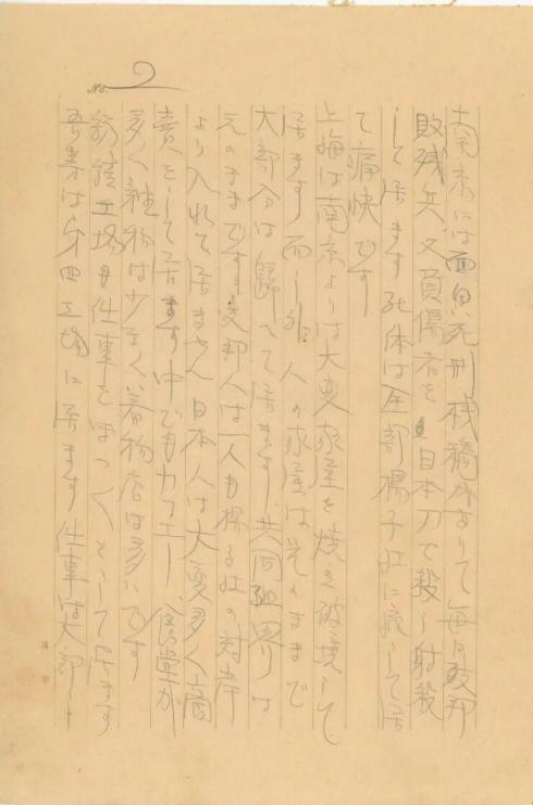 No. 2
南京には面白い死刑桟橋がありて毎日支那
敗残兵又負傷者を日本刀で殺し射殺
して居ます死体は全部楊子江に流して居
て痛快です
上海は南京よりは大変家屋を焼き破壊して
居ます而し外人の家屋は元のままで
大部分は帰へて居ます共同租界は
元のままです支那人は一人も楊子江の対岸
より入れて居ません日本人は大変多く商
賣をして居ます中でもカフエー食堂が
多く雑物は少なく着物店は多いです
紡績工場も仕事をぼつぼつして居ます
吾等は第四工場に居ます仕事は大部